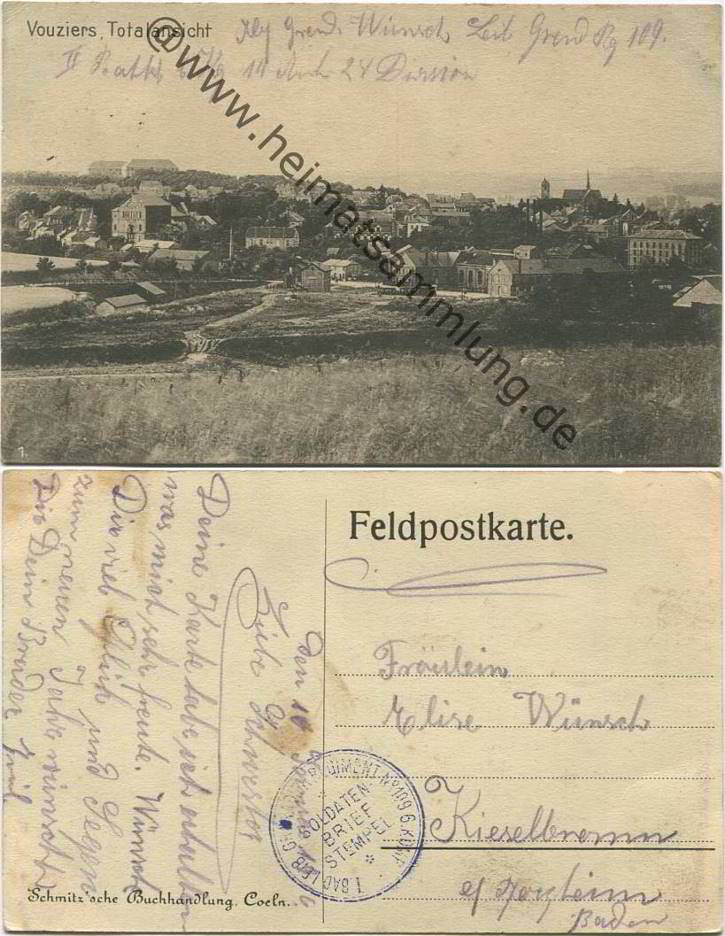 Vouziers, Totalansicht
Wünsch Leib Grend Rg 109.
28 Division
@www.heimatsammlung.de
1.
Feldpostkarte.
Fräulein
Elise Wünsch
Kieselbronn
Baden
den 10
Liebe Schwester
Deine Karte habe ich erhalten
was mich sehr freute. Wünsche
Dir viel Glück und Segen
zum neuen Jahr wünscht
Dir Dein Bruder Emil
1. BAD. LEIB REGIMENT No 109 6. KOMP.
SOLDATEN-
BRIEF
STEMPEL
Schmitz'sche Buchhandlung, Coeln.